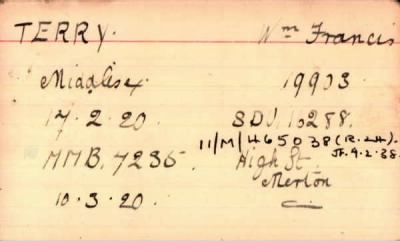 TERRY. Wm Francis
Middlesex. 19903.
17.2.20. SDV. 10288.
11/M/465038 (R.LH).
MMB. 7235. High St JF. 9.2.38.
Merton
10.3.20.